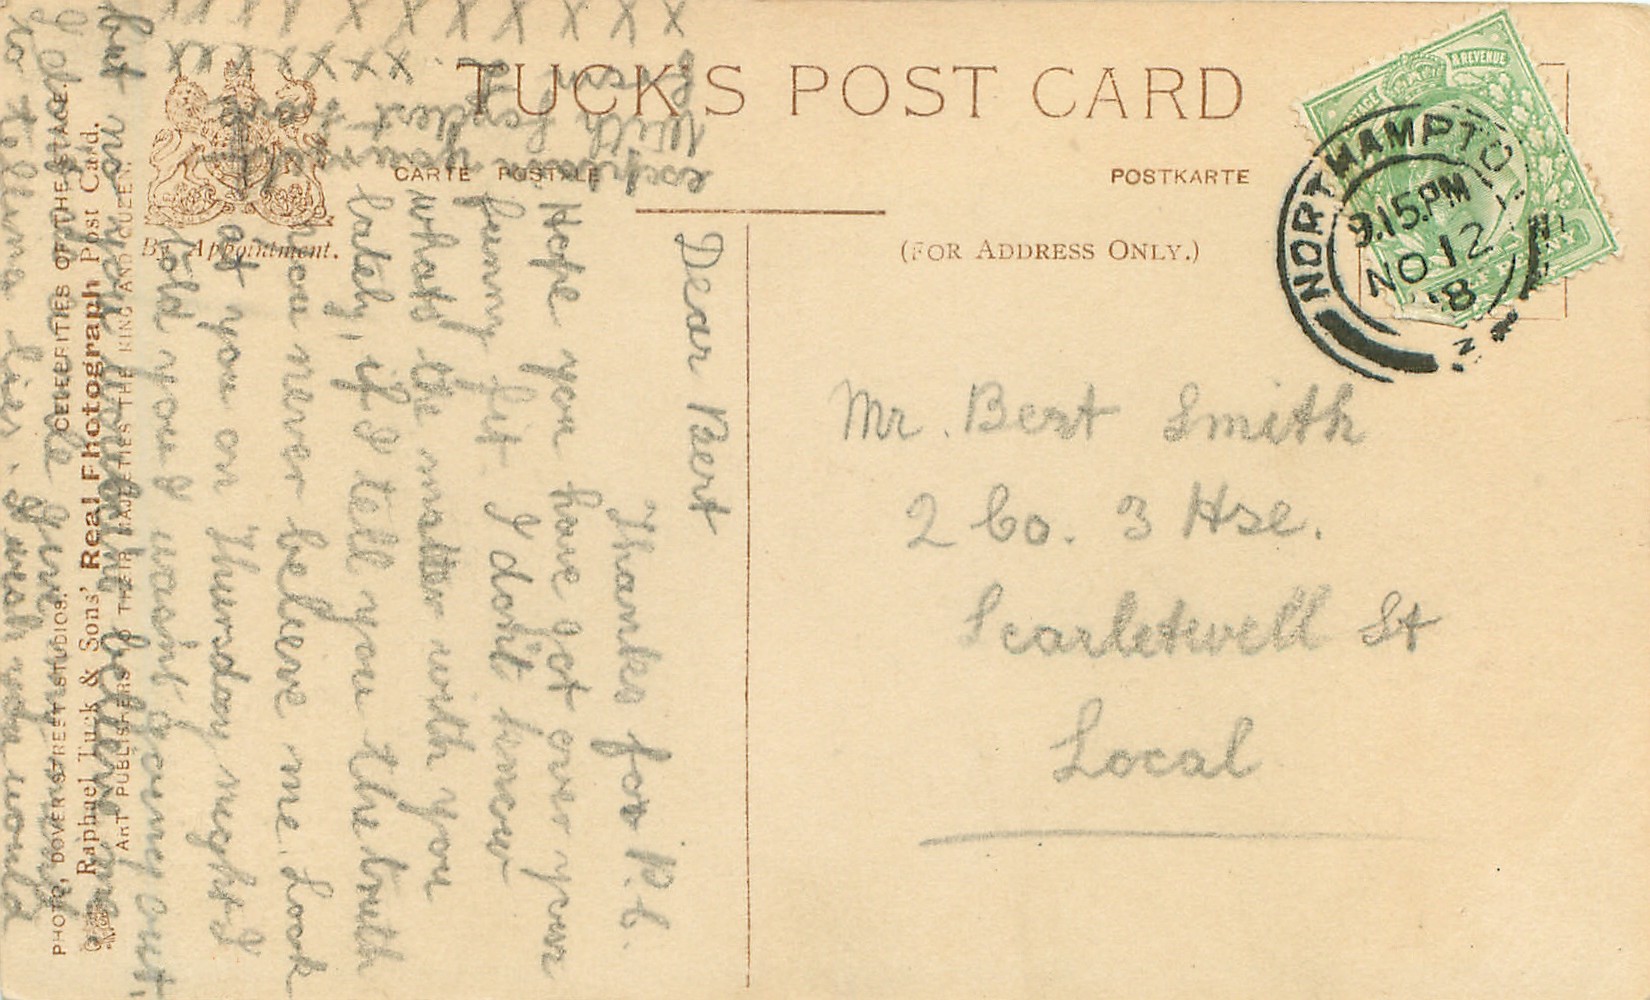 TUCK'S POST CARD
CARTE POSTALE
POSTKARTE
(FOR ADDRESS ONLY.)
By Appointment.
& REVENUE
NORTHAMPTO
9.15.PM
NO 12
8
Mr. Bert Smith
2 Co. 3 Hse.
Scarletwell St
Local
Dear Bert
Thanks for P.C.
Hope you have got over your
funny fit. I don't know
whats the matter with you
lately, if I tell you the truth
you never believe me. Look
at you on Thursday night I
told you I wasint going out,
but no you wouldint believe me
to tell me lies. I wish you would
x x x x x x x x x
x x x x x x x
PHOTO, DOVER STREET STUDIOS. CELEBRITIES OF THE STAGE.
Raphael Tuck & Sons' Real Photograph Post Card.
ART PUBLISHERS TO THEIR MAJESTIES THE KING AND QUEEN.